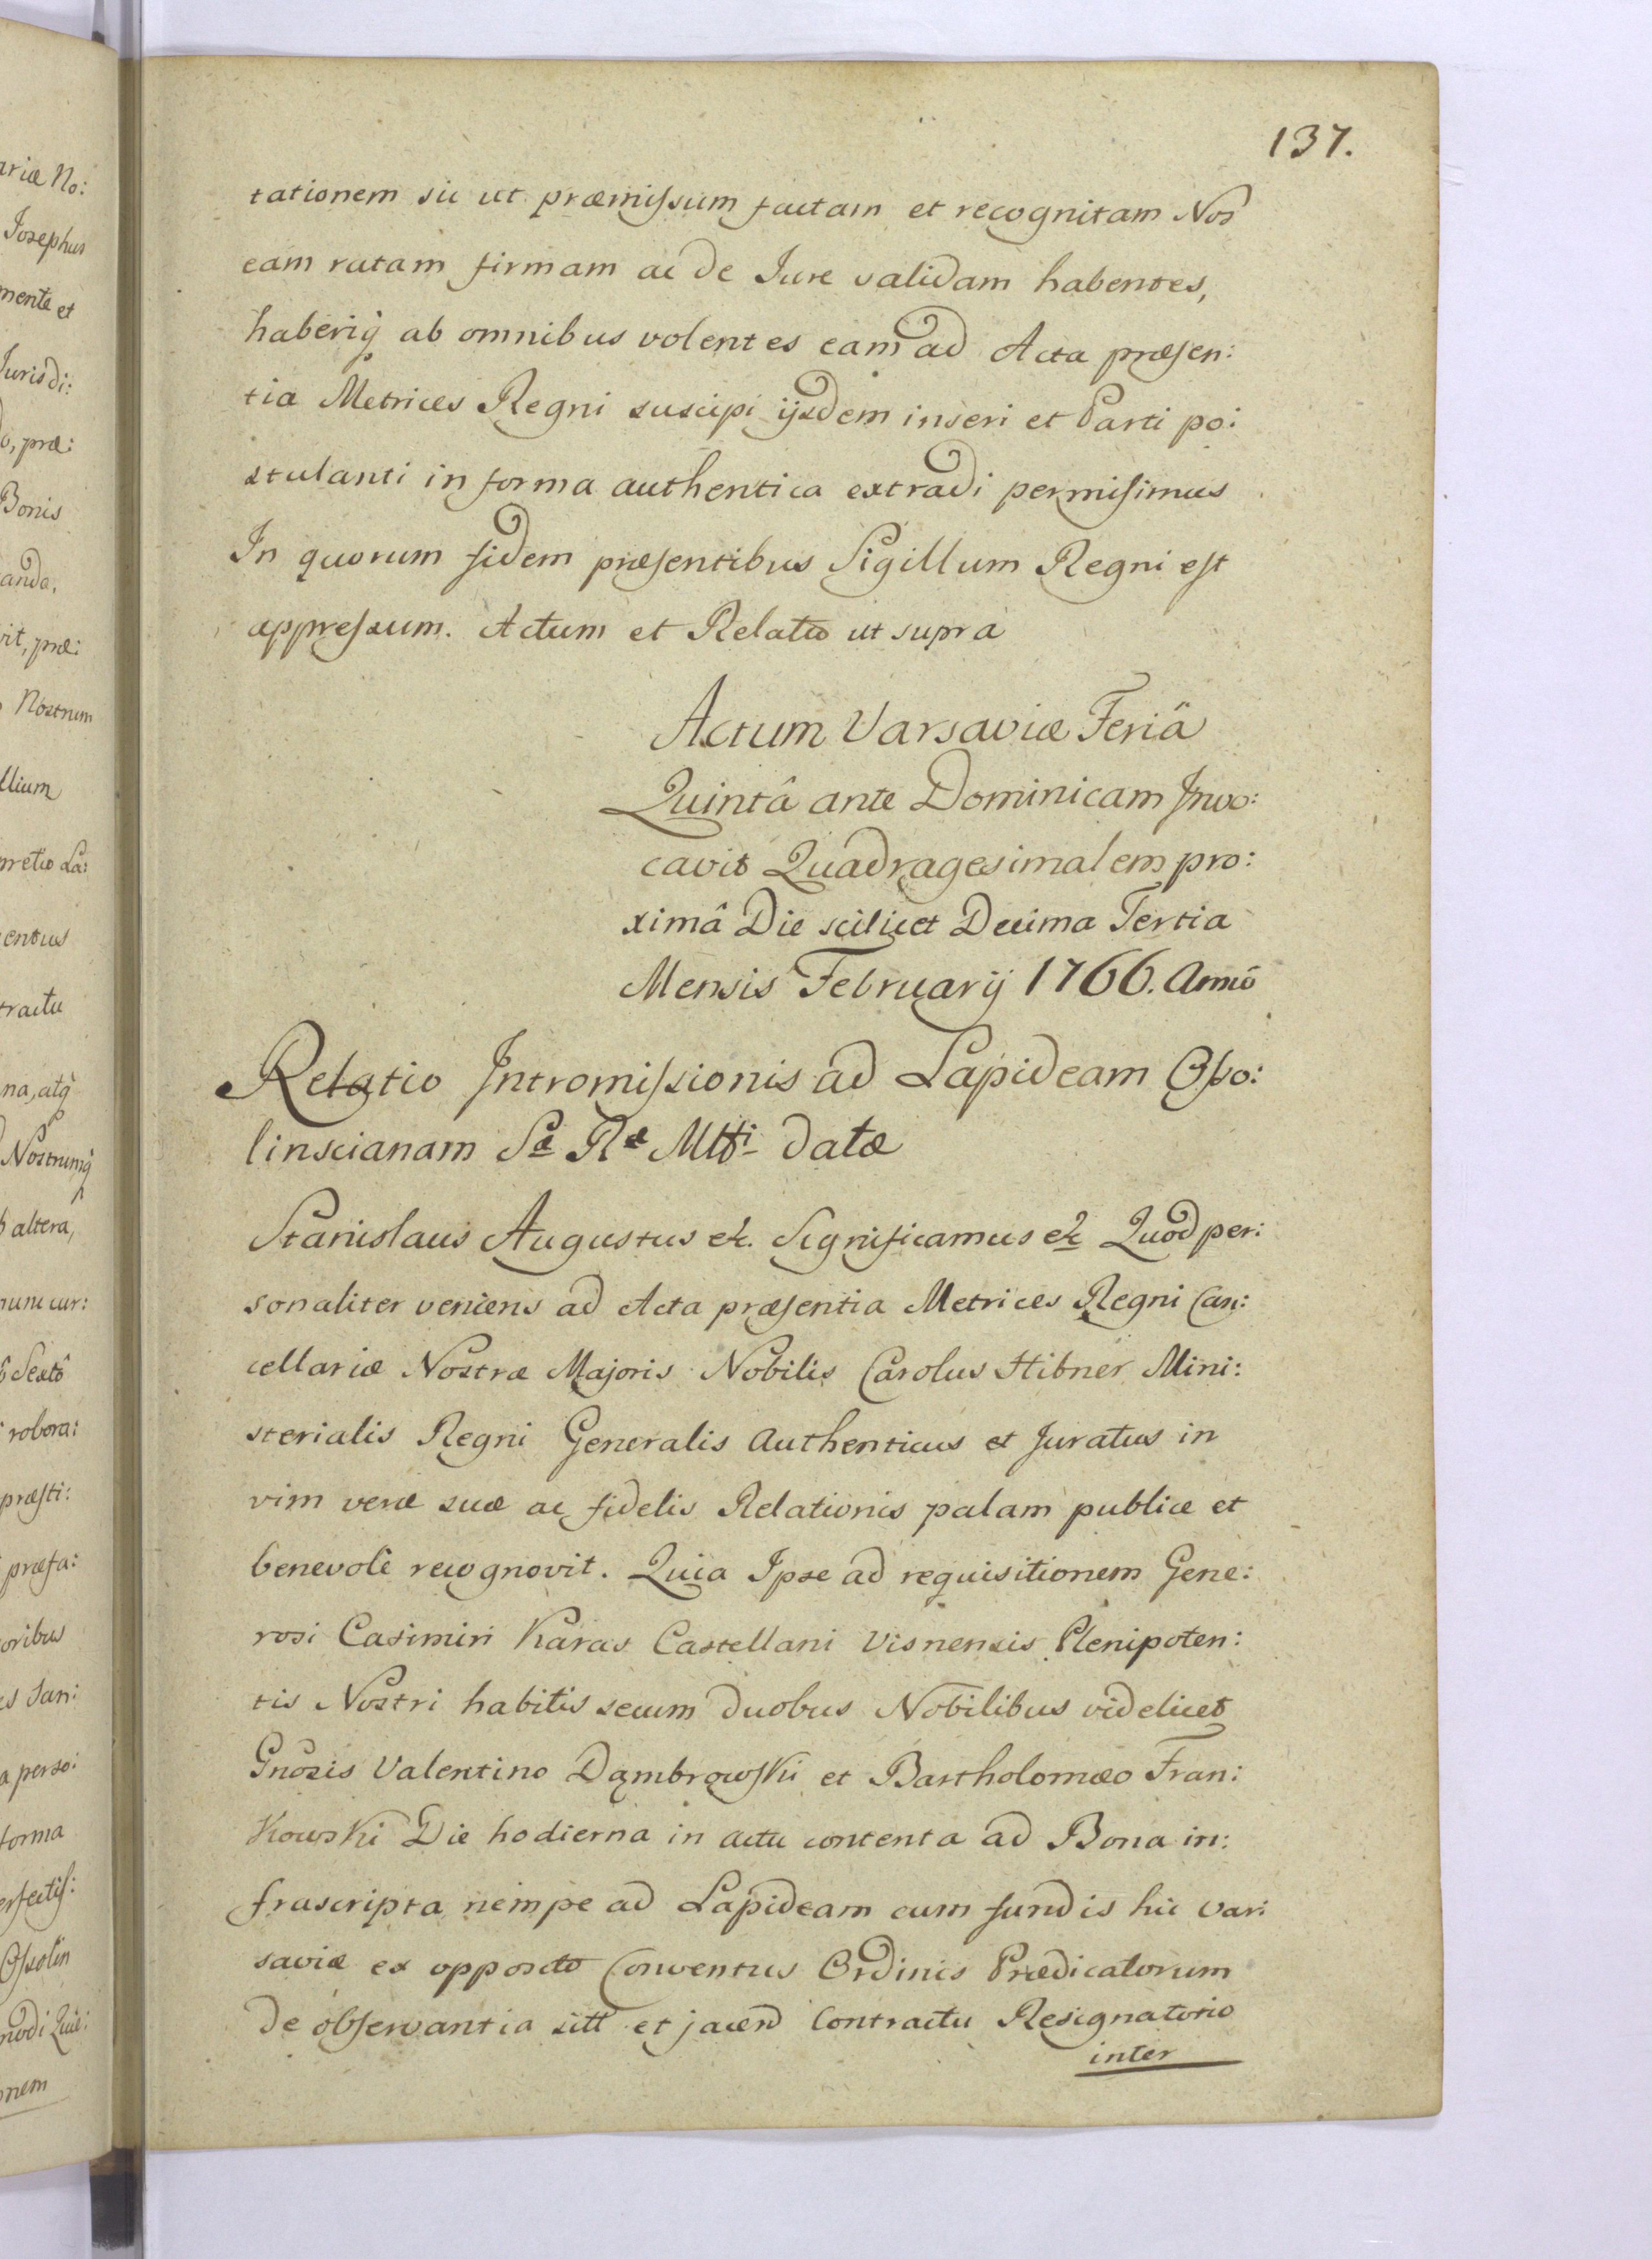 137.
tationem sic ut præmissum factam et recognitam Nos
eam ratam firmam ac de Jure validam habentes,
haberiq̀ ab omnibus volentes eam ad Acta præsen:
tia Metrices Regni suscipi ijsdem inseri et Parti po:
stulanti in forma authentica extradi permisimus
In quorum fidem præsentibus Sigillum Regni est
appressum. Actum et Relatio ut supra
Actum Varsaviæ Feriâ
Quintâ ante Dominicam Invo:
cavit Quadragesimalem pro:
ximâ Die scilicet Decima Tertia
Mensis Februarij 1766. Annô
Relatio Intromissionis ad Lapideam Osso:
linscianam Sæ Ræ Mtti datæ
Stanislaus Augustus &. Significamus & Quod per:
sonaliter veniens ad Acta præsentia Metrices Regni Can:
cellariæ Nostræ Majoris Nobilis Carolus Hibner Mini:
sterialis Regni Generalis Authenticus et Juratus in
vim veræ suæ ac fidelis Relationis palam publice et
benevolè recognovit. Quia Ipse ad requisitionem Gene:
rosi Casimiri Karas Castellani Visnensis Plenipoten:
tis Nostri habitis secum duobus Nobilibus videlicet
Gnosis Valentino Dąmbrowski et Bartholomæo Fran:
kowski Die hodierna in actu contenta ad Bona in:
frascripta nempe ad Lapideam cum fundis hic Var:
saviæ ex opposito Conventus Ordinis Prædicatorum
de observantia sitt et jacen Contractu Resignatorio
inter